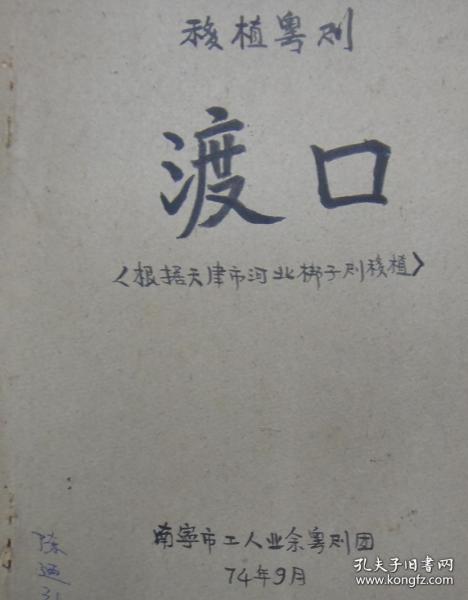 移植粤剧
渡口
〈根据天津市河北梆子剧移植〉
南宁市工人业余粤剧团
74年9月
陈
孔夫子旧书网
www.kongfz.com